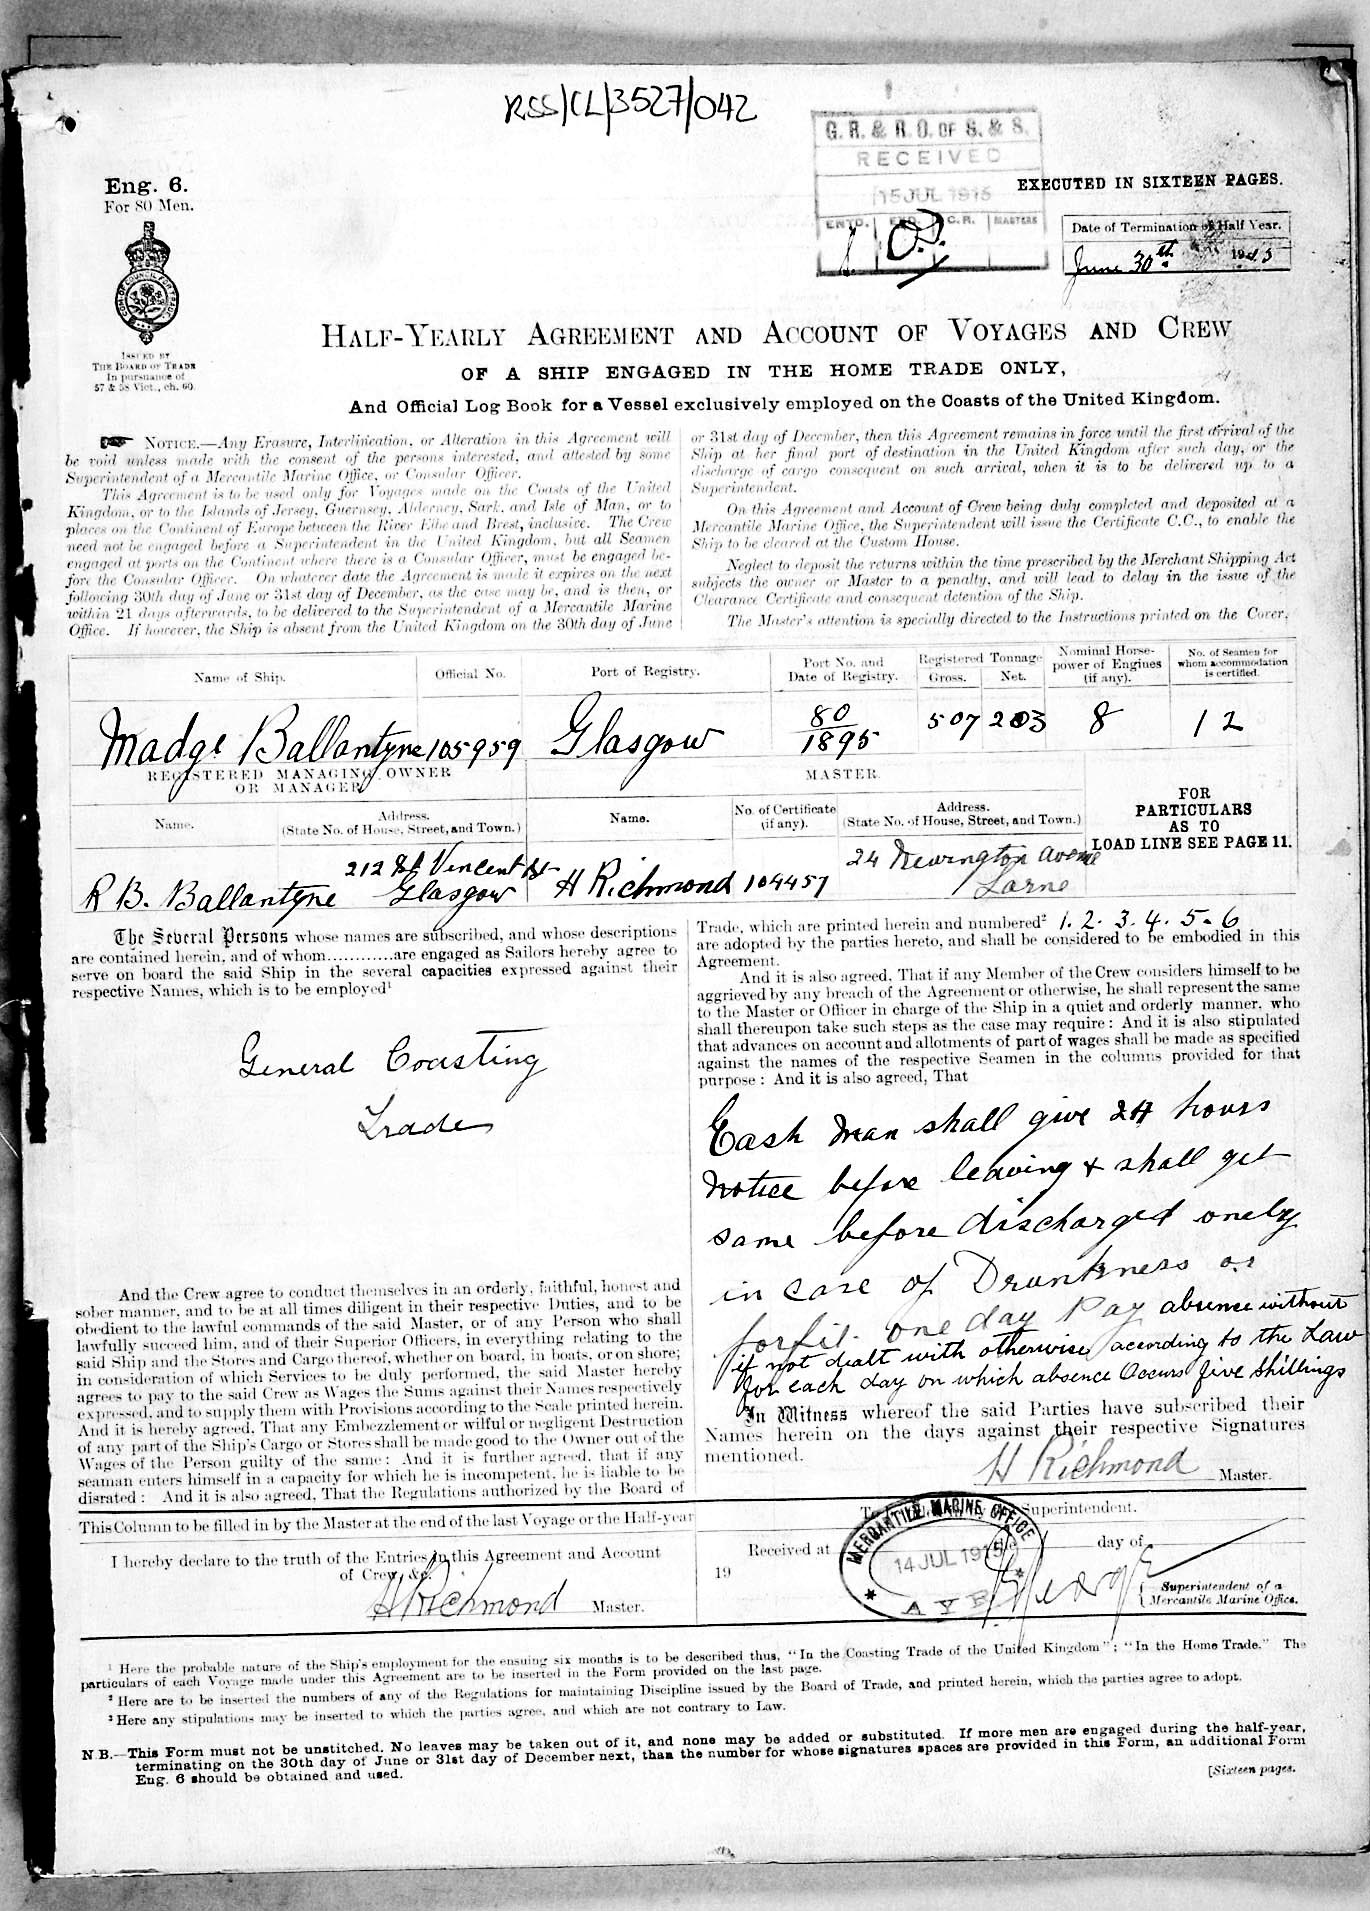 RSS/CL/3527/042
G. R. & R. O. OF S. & S.
RECEIVED
15 JUL 1915
ENTD. EXD. C.R. MASTERS
EXECUTED IN SIXTEEN PAGES.
Eng. 6.
For 80 Men.
Date of Termination of Half Year.
June 30th 1915
ISSUED BY
THE BOARD OF TRADE
In pursuance of
57 & 58 Vict., ch. 60.
HALF-YEARLY AGREEMENT AND ACCOUNT OF VOYAGES AND CREW
OF A SHIP ENGAGED IN THE HOME TRADE ONLY,
And Official Log Book for a Vessel exclusively employed on the Coasts of the United Kingdom.
NOTICE.—Any Erasure, Interlineation, or Alteration in this Agreement will
be void unless made with the consent of the persons interested, and attested by some
Superintendent of a Mercantile Marine Office, or Consular Officer.
This Agreement is to be used only for Voyages made on the Coasts of the United
Kingdom, or to the Islands of Jersey, Guernsey, Alderney, Sark, and Isle of Man, or to
places on the Continent of Europe between the River Elbe and Brest, inclusive. The Crew
need not be engaged before a Superintendent in the United Kingdom, but all Seamen
engaged at ports on the Continent where there is a Consular Officer, must be engaged be-
fore the Consular Officer. On whatever date the Agreement is made it expires on the next
following 30th day of June or 31st day of December, as the case may be, and is then, or
within 21 days afterwards, to be delivered to the Superintendent of a Mercantile Marine
Office. If however, the Ship is absent from the United Kingdom on the 30th day of June
or 31st day of December, then this Agreement remains in force until the first arrival of the
Ship at her final port of destination in the United Kingdom after such day, or the
discharge of cargo consequent on such arrival, when it is to be delivered up to a
Superintendent.
On this Agreement and Account of Crew being duly completed and deposited at a
Mercantile Marine Office, the Superintendent will issue the Certificate C.C., to enable the
Ship to be cleared at the Custom House.
Neglect to deposit the returns within the time prescribed by the Merchant Shipping Act
subjects the owner or Master to a penalty, and will lead to delay in the issue of the
Clearance Certificate and consequent detention of the Ship.
The Master's attention is specially directed to the Instructions printed on the Cover.
Name of Ship. Official No. Port of Registry. Port No. and Date of Registry. Registered Tonnage Gross. Net. Nominal Horse-power of Engines (if any). No. of Seamen for whom accommodation is certified.
Madge Ballantyne 105959 Glasgow 80/1895 507 203 8 12
REGISTERED MANAGING OWNER
OR MANAGER
MASTER.
Name. Address. (State No. of House, Street, and Town.) Name. No. of Certificate (if any). Address. (State No. of House, Street, and Town.)
FOR
PARTICULARS
AS TO
LOAD LINE SEE PAGE 11.
R B. Ballantyne 212 St Vincent St Glasgow H Richmond 104457 24 Newington Avenue Larne
The Several Persons whose names are subscribed, and whose descriptions
are contained herein, and of whom............are engaged as Sailors hereby agree to
serve on board the said Ship in the several capacities expressed against their
respective Names, which is to be employed1
General Coasting
Trade
And the Crew agree to conduct themselves in an orderly, faithful, honest and
sober manner, and to be at all times diligent in their respective Duties, and to be
obedient to the lawful commands of the said Master, or of any Person who shall
lawfully succeed him, and of their Superior Officers, in everything relating to the
said Ship and the Stores and Cargo thereof, whether on board, in boats, or on shore;
in consideration of which Services to be duly performed, the said Master hereby
agrees to pay to the said Crew as Wages the Sums against their Names respectively
expressed, and to supply them with Provisions according to the Scale printed herein.
And it is hereby agreed, That any Embezzlement or wilful or negligent Destruction
of any part of the Ship's Cargo or Stores shall be made good to the Owner out of the
Wages of the Person guilty of the same: And it is further agreed, that if any
seaman enters himself in a capacity for which he is incompetent, he is liable to be
disrated: And it is also agreed, That the Regulations authorized by the Board of
Trade, which are printed herein and numbered2 1. 2. 3. 4. 5. 6
are adopted by the parties hereto, and shall be considered to be embodied in this
Agreement.
And it is also agreed, That if any Member of the Crew considers himself to be
aggrieved by any breach of the Agreement or otherwise, he shall represent the same
to the Master or Officer in charge of the Ship in a quiet and orderly manner, who
shall thereupon take such steps as the case may require: And it is also stipulated
that advances on account and allotments of part of wages shall be made as specified
against the names of the respective Seamen in the columns provided for that
purpose: And it is also agreed, That
Eash Man shall give 24 hours
Notice before leaving & shall get
same before discharged onely
in case of Drunkness or
forfit one day Pay absence without
if not dealt with otherwise according to the Law
for each day on which absence Occurs five Shillings
In Witness whereof the said Parties have subscribed their
Names herein on the days against their respective Signatures
mentioned.
H Richmond Master.
This Column to be filled in by the Master at the end of the last Voyage or the Half-year
I hereby declare to the truth of the Entries in this Agreement and Account
of Crew, &c.
H Richmond Master.
Superintendent.
Received at day of
19
MERCANTILE MARINE OFFICE
14 JUL 1915
AYR
Superintendent of a
Mercantile Marine Office.
1 Here the probable nature of the Ship's employment for the ensuing six months is to be described thus, "In the Coasting Trade of the United Kingdom"; "In the Home Trade." The
particulars of each Voyage made under this Agreement are to be inserted in the Form provided on the last page.
2 Here are to be inserted the numbers of any of the Regulations for maintaining Discipline issued by the Board of Trade, and printed herein, which the parties agree to adopt.
3 Here any stipulations may be inserted to which the parties agree, and which are not contrary to Law.
N.B.—This Form must not be unstitched. No leaves may be taken out of it, and none may be added or substituted. If more men are engaged during the half-year,
terminating on the 30th day of June or 31st day of December next, than the number for whose signatures spaces are provided in this Form, an additional Form
Eng. 6 should be obtained and used.
[Sixteen pages.